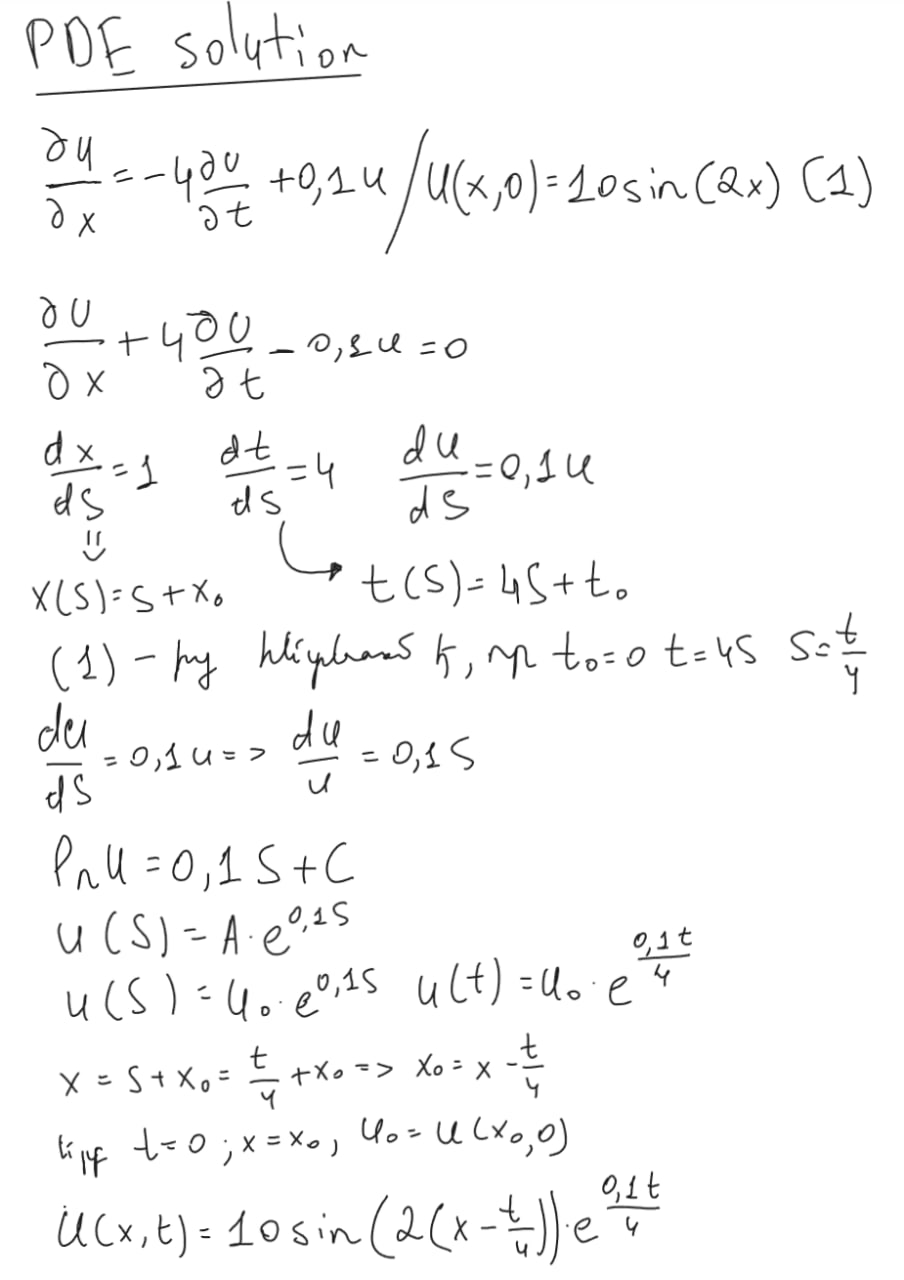 PDE solution
∂u/∂x = -4∂u/∂t + 0,1u / U(x,0)=10sin(2x) (1)
∂U/∂x + 4∂U/∂t - 0,1u = 0
dx/dS = 1 dt/dS = 4 du/dS = 0,1u
⇓ → t(S)=4S+t₀
x(S)=S+x₀
(1) - է, որ t₀=0 t=4S S=t/4
du/dS = 0,1u => du/u = 0,1S
ln u = 0,1S+C
u(S) = A·e^(0,1S)
u(S) = u₀·e^(0,1S) u(t) = u₀·e^(0,1t/4)
x = S+x₀ = t/4 + x₀ => x₀ = x - t/4
t=0; x=x₀, u₀=u(x₀,0)
U(x,t) = 10sin(2(x-t/4))·e^(0,1t/4)